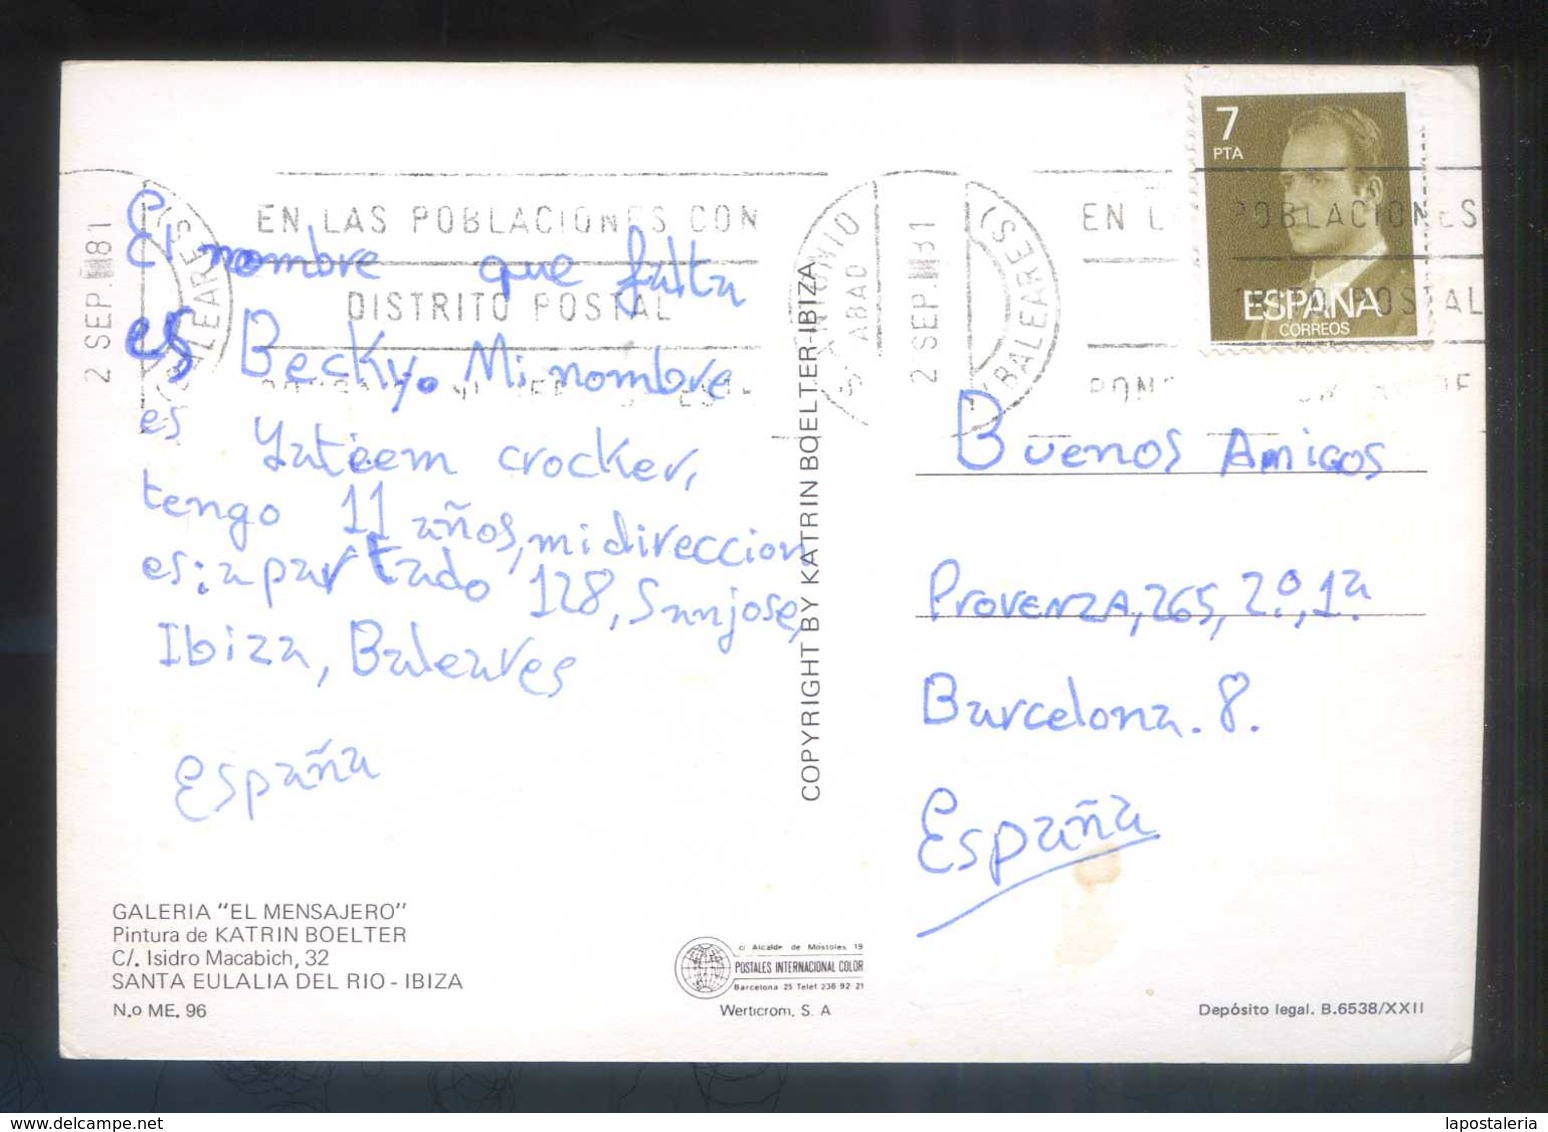 7
PTA
ESPAÑA
CORREOS
2 SEP. 81
(BALEARES)
EN LAS POBLACIONES CON
DISTRITO POSTAL
ANTONIO
ABAD
2 SEP. 81
(BALEARES)
EN L POBLACIONES
POSTAL
El nombre que falta
es Becky. Mi nombre
es crocker,
tengo 11 años, mi direccion
es: apartado 128, San jose,
Ibiza, Baleares
España
COPYRIGHT BY KATRIN BOELTER-IBIZA
Buenos Amigos
Provenza, 265, 2.º, 1ª
Barcelona. 8.
España
GALERIA "EL MENSAJERO"
Pintura de KATRIN BOELTER
C/. Isidro Macabich, 32
SANTA EULALIA DEL RIO - IBIZA
N.o ME. 96
c/ Alcalde de Mostoles 19
POSTALES INTERNACIONAL COLOR
Barcelona 25 Telef 236 92 21
Werticrom, S. A
Depósito legal. B.6538/XXII
delcampe.net
lapostaleria